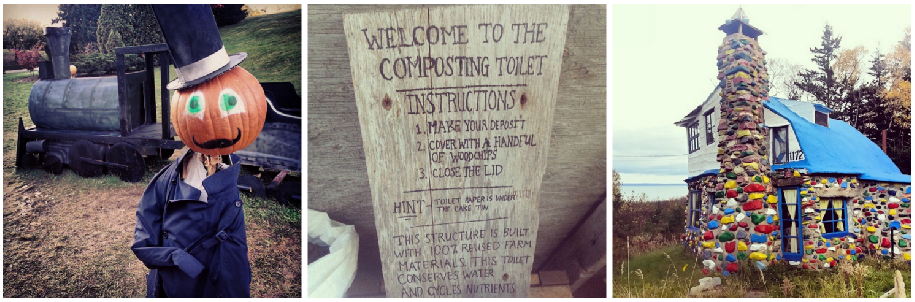 WELCOME TO THE
COMPOSTING TOILET
INSTRUCTIONS
1. MAKE YOUR DEPOSIT
2. COVER WITH A HANDFUL
OF WOODCHIPS
3. CLOSE THE LID
HINT - TOILET PAPER IS UNDER
THE CAKE TIN
THIS STRUCTURE IS BUILT
WITH 100% REUSED FARM
MATERIALS. THIS TOILET
CONSERVES WATER
AND CYCLES NUTRIENTS